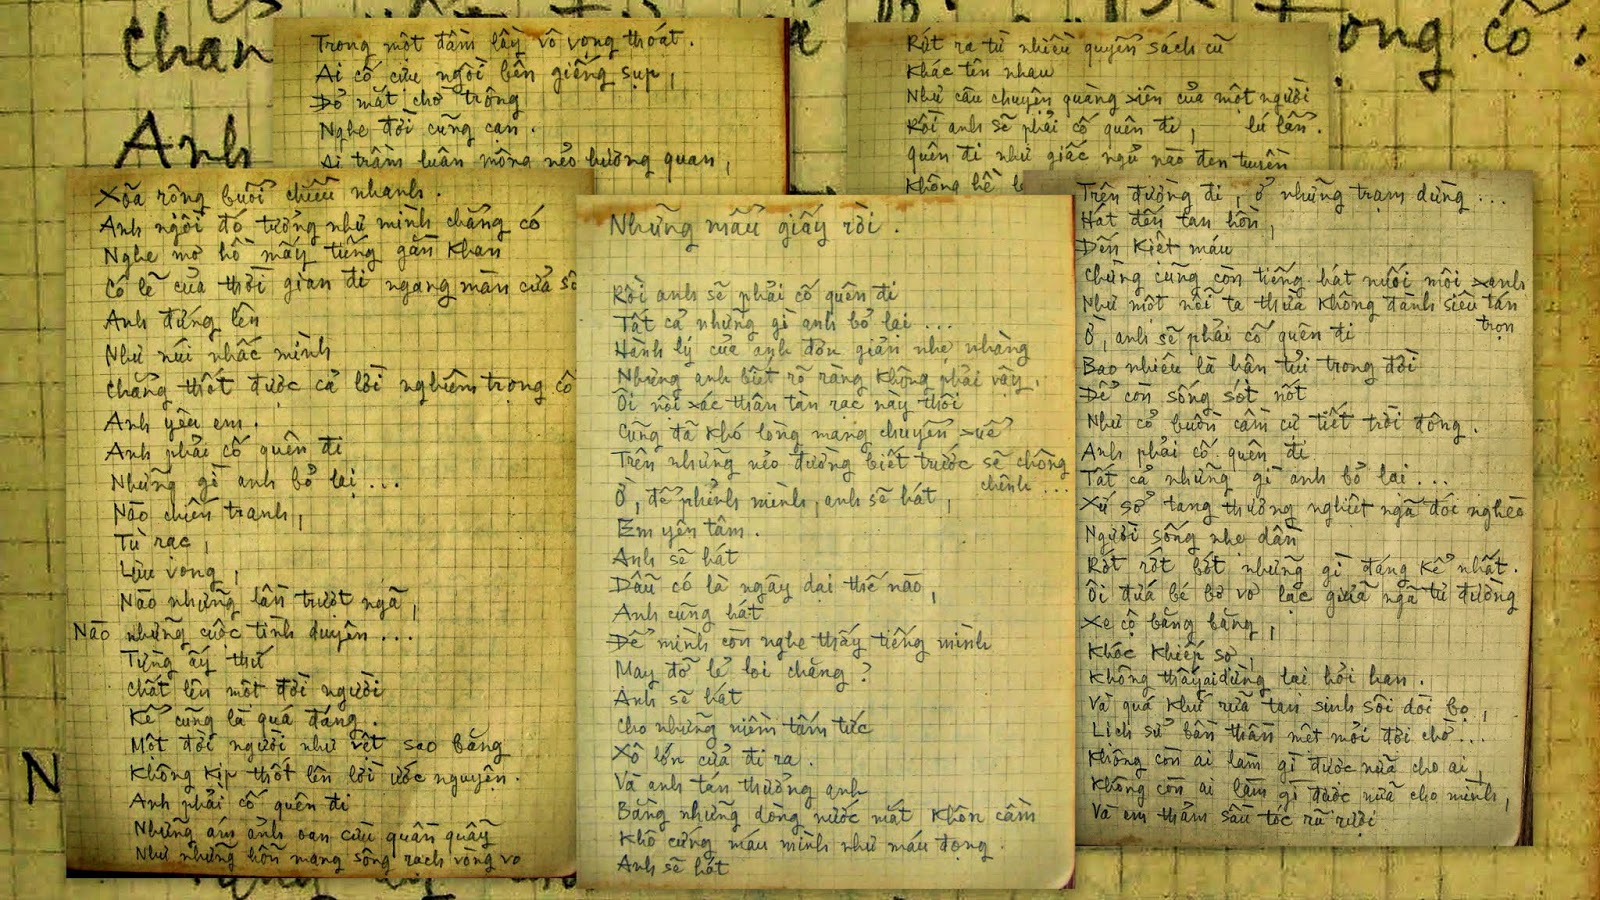 Những mẩu giấy rời.
Rồi anh sẽ phải cố quên đi
Tất cả những gì anh bỏ lại ...
Hành lý của anh đơn giản nhẹ nhàng
Nhưng anh biết rõ ràng không phải vậy.
Ôi nội xác thân tàn rạc này thôi
Cũng đã khó lòng mang chuyển xuể
Trên những nẻo đường biết trước sẽ chông
chênh ...
Ờ, để phỉnh mình, anh sẽ hát,
Em yên tâm.
Anh sẽ hát
Dẫu có là ngây dại thế nào,
Anh cũng hát
Để mình còn nghe thấy tiếng mình
May đỡ lẻ loi chăng?
Anh sẽ hát
Cho những niềm tấm tức
Xô lớn cửa đi ra.
Và anh tán thưởng anh
Bằng những dòng nước mắt khôn cầm
Khô cứng máu mình như máu đọng.
Anh sẽ hát
Trên đường đi, ở những trạm dừng ...
Hát đến tan hồn,
Đến kiệt máu
Chừng cũng còn tiếng hát nuối môi xanh
Như một nỗi ta thừa không đành siêu tán
trọn
Ờ, anh sẽ phải cố quên đi
Bao nhiêu là hận tủi trong đời
Để còn sống sót nốt
Như cỏ buồn cầm cự tiết trời đông.
Anh phải cố quên đi
Tất cả những gì anh bỏ lại ...
Xứ sở tang thương nghiệt ngã đói nghèo
Người sống nhẹ dần
Rớt rớt bớt những gì đáng kể nhất.
Ôi đứa bé bơ vơ lạc giữa ngã tư đường
Xe cộ băng băng,
Khóc khiếp sợ,
Không thấy ai dừng lại hỏi han.
Và quá khứ rữa tan sinh sôi dòi bọ,
Lịch sử bần thần mệt mỏi đợi chờ...
Không còn ai làm gì được nữa cho ai,
Không còn ai làm gì được nữa cho mình,
Và em thảm sầu tóc rã rượi
Xõa rộng buổi chiều nhanh.
Anh ngồi đó tưởng như mình chẳng có
Nghe mơ hồ mấy tiếng gằn khan
Có lẽ của thời gian đi ngang màn cửa
Anh đứng lên
Như núi nhấc mình
Chẳng thốt được cả lời nghiêm trọng cỗ
Anh yêu em.
Anh phải cố quên đi
Những gì anh bỏ lại ...
Nào chiến tranh,
Tù rạc,
Lưu vong,
Nào những lần trượt ngã,
Nào những cuộc tình duyên ...
Từng ấy thứ
Chất lên một đời người
Kể cũng là quá đáng.
Một đời người như vệt sao băng
Không kịp thốt lên lời ước nguyện.
Anh phải cố quên đi
Những ám ảnh oan cừu quần quẫy
Như những hỗn mang sông rạch vòng vo
Trong một đầm lầy vô vọng thoát.
Ai cố cựu ngồi bên giếng sụp,
Đỏ mắt chờ trông
Nghe đời cũng cạn.
Ai trầm luân mộng nẻo hương quan,
Rút ra từ nhiều quyển sách cũ
Khác tên nhau
Như câu chuyện quàng xiên của một người
lú lẫn.
Rồi anh sẽ phải cố quên đi,
Quên đi như giấc ngủ nào đen tuyền
Không hề
Chẳn
Anh
N
trọng cỗ: